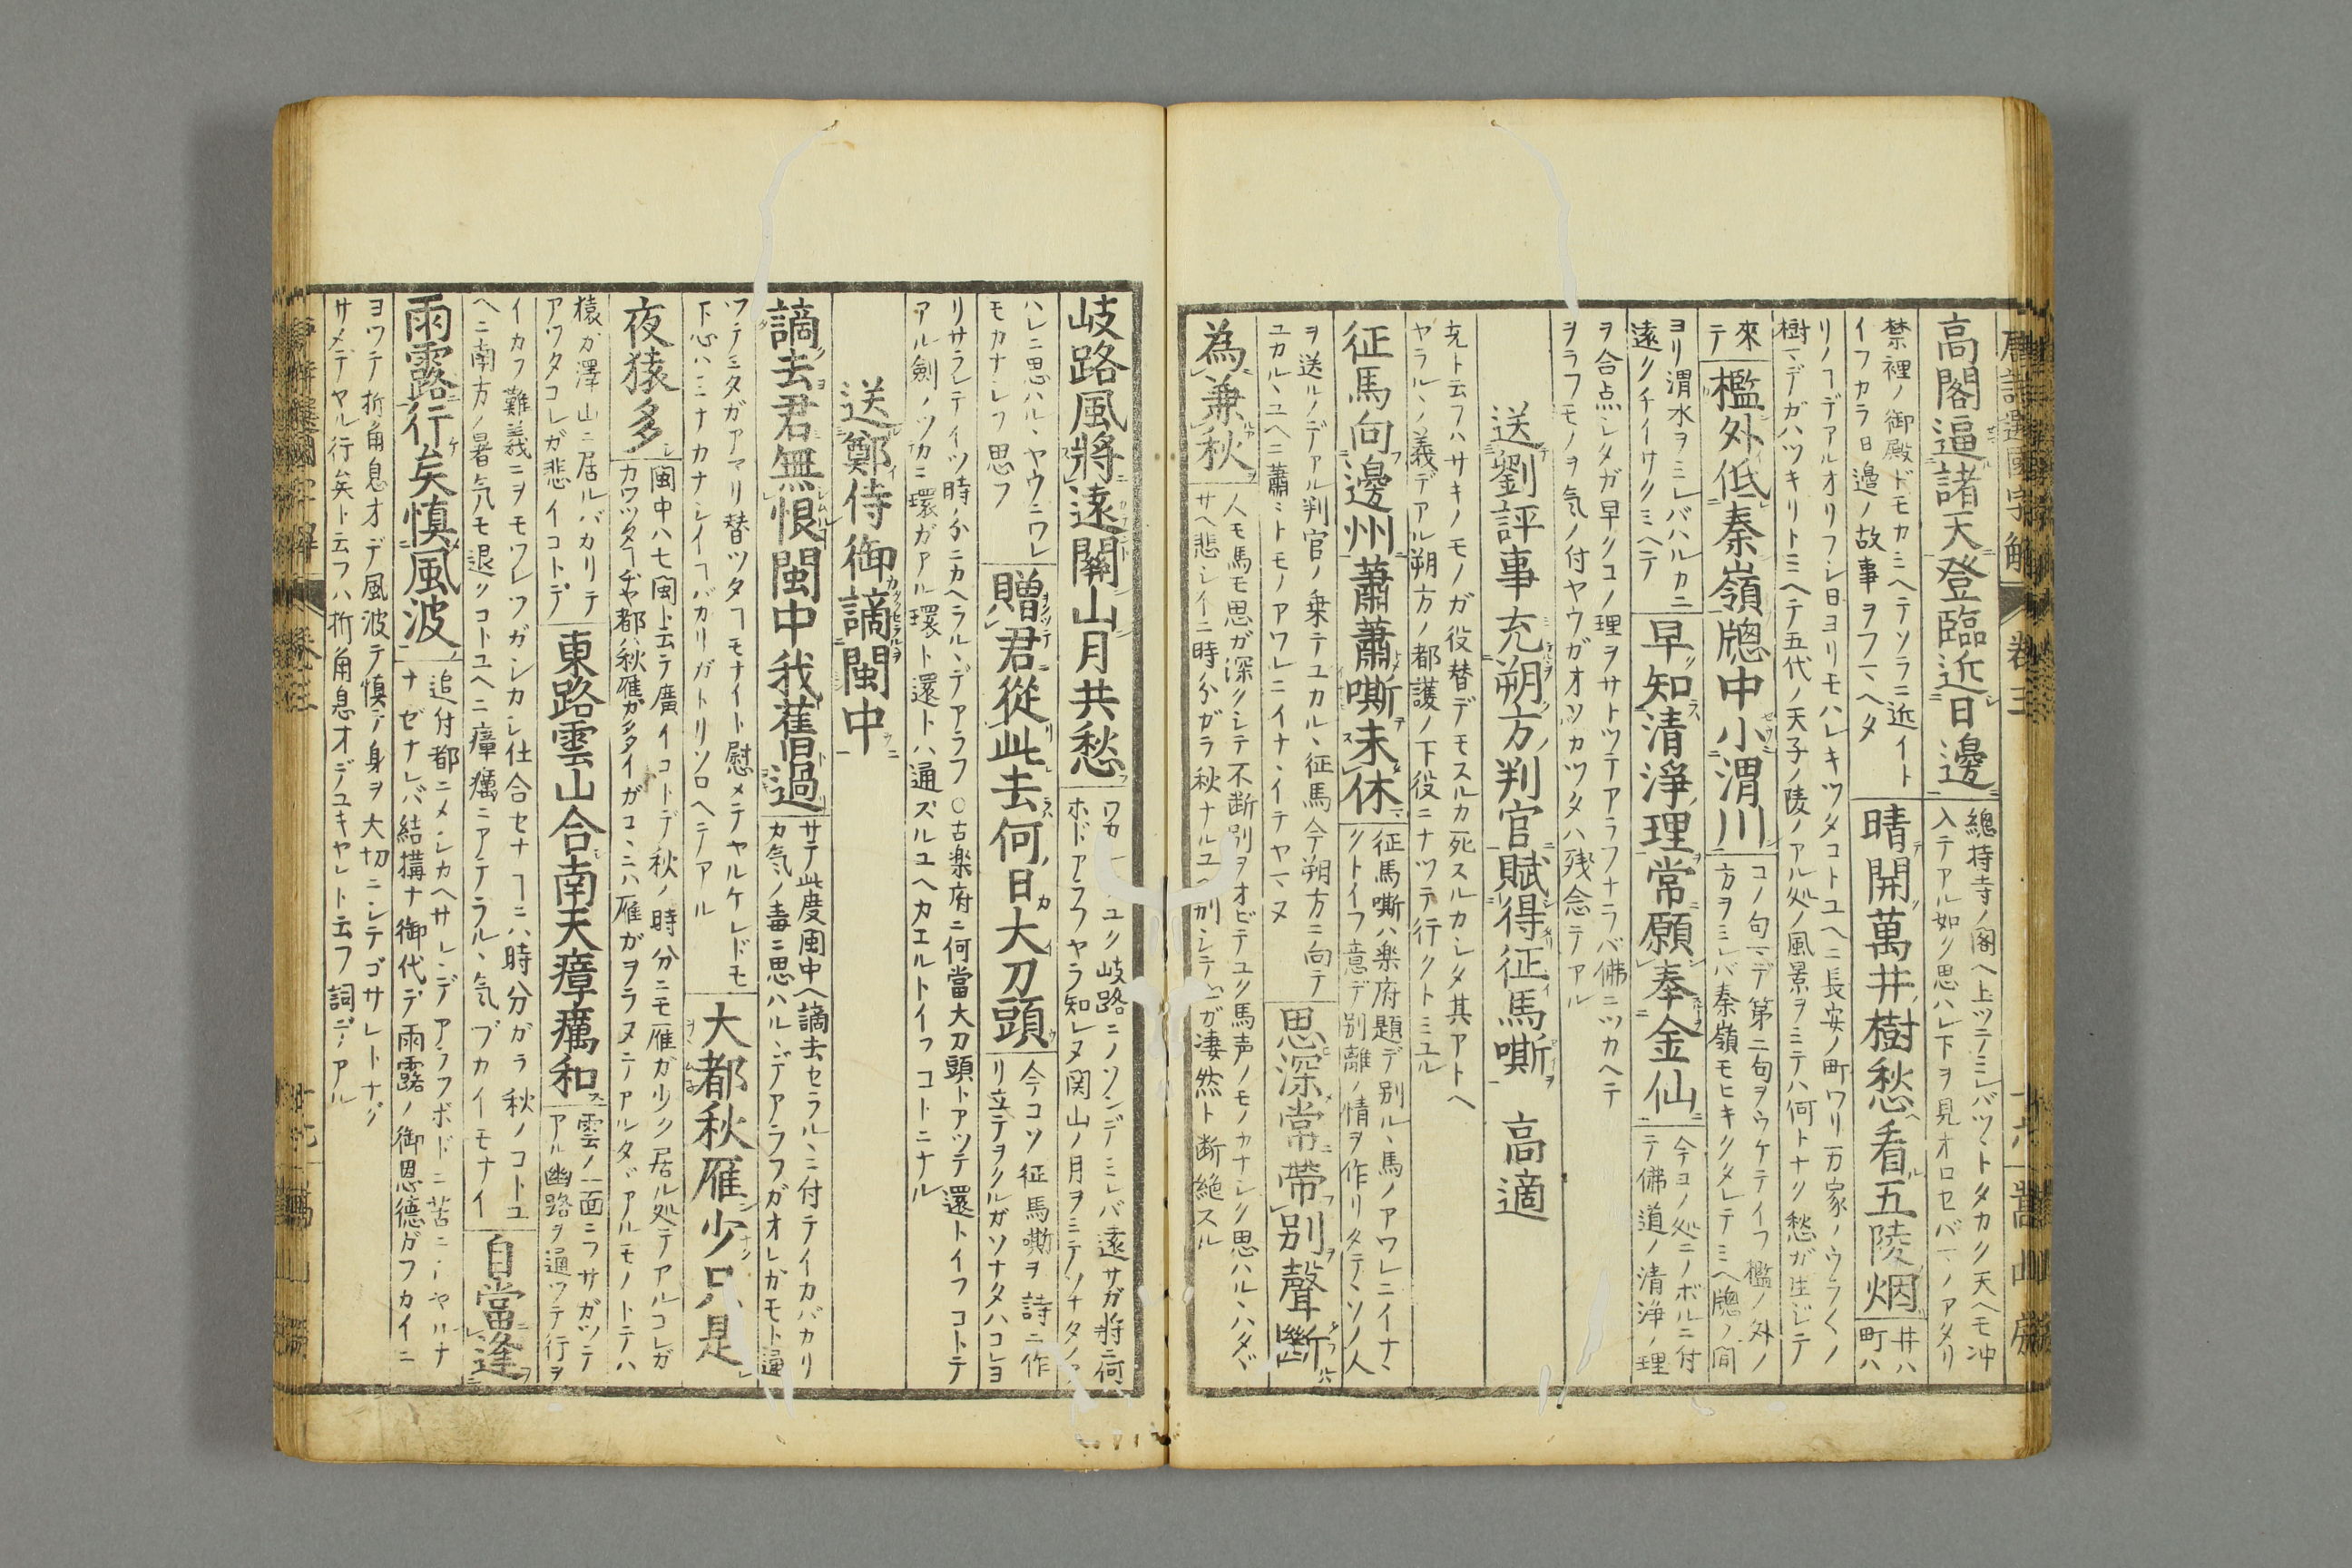 唐詩選國字解 卷三
高閣逼諸天登臨近日邊 總持寺ノ閣ヘ上ツテミレバツヽトタカク天ヘモ冲
入テアル如ク思ハレ下ヲ見オロセバマノアタリ
禁裡ノ御殿ドモカミヘテソラニ近イト
イフカラ日邉ノ故事ヲフマヘタ
晴開萬井樹愁看五陵烟 井ハ
町ハ
リノヿデアルオリフシ日ヨリモハレキツタコトユヘニ長安ノ町ワリ一万家ノウラ〱ノ
樹マデガハツキリトミヘテ五代ノ天子ノ陵ノアル処ノ風景ヲミテハ何トナク愁ガ生ジテ
來
テ
檻外低秦嶺牕中小渭川 コノ句マデ第二句ヲウケテイフ檻ノ外ノ
方ヲミレバ秦嶺モヒキクタレテミヘ牕ノ間
ヨリ渭水ヲミレバハルカニ
遠クチイサクミヘテ
早知清淨理常願奉金仙 今コノ処ニノボルニ付
テ佛道ノ清浄ノ理
ヲ合点シタガ早クコノ理ヲサトツテアラフナラバ佛ニツカヘテ
ヲラフモノヲ気ノ付ヤウガオソカツタハ残念テアル
送劉評事充朔方判官賦得征馬嘶 高適
充ト云フハサキノモノガ役替デモスルカ死スルカシタ其アトヘ
ヤラルヽノ義デアル朔方ノ都護ノ下役ニナツテ行クトミユル
征馬向邊州蕭蕭嘶未休 征馬嘶ハ楽府題デ別ルヽ馬ノアワレニイナヽ
クトイフ意デ別離ノ情ヲ作リタテヽソノ人
ヲ送ルノデアル判官ノ乗テユカルヽ征馬今朔方ニ向テ
ユカルヽユヘニ蕭ミトモノアワレニイナヽイテヤマヌ
思深常帶別聲斷
為兼秋 人モ馬モ思ガ深クシテ不断別ヲオビテユク馬声ノモノカナシク思ハルヽハタヾ
サヘ悲シイニ時分ガラ秋ナルユヘ別シテ心ガ凄然ト断絶スル
岐路風將遠關山月共愁 ユク岐路ニノソンデミレバ遠サガ將ニ何
ホドアラフヤラ知レヌ関山ノ月ヲミテソナタノヤ
ハレニ思ハルヽヤウニワレ
モカナシフ思フ
贈君從此去何日大刀頭 今コソ征馬嘶ヲ詩ニ作
リ立テヲクルガソナタハコレヨ
リサラレテイツ時分ニカヘラルヽデアラフ○古楽府ニ何當大刀頭トアツテ還トイフコトテ
アル剣ノツカニ環ガアル環ト還トハ通ズルユヘカエルトイフコトニナル
送鄭侍御謫閩中
謫去君無恨閩中我舊過 サテ此度閩中ヘ謫去セラルヽニ付テイカバカリ
カ気ノ毒ニ思ハルヽデアラフガオレガモト通
ツテミタガアマリ替ツタヿモナイト慰メテヤルケレドモ
下心ハミナカナシイヿバカリガトリソロヘテアル
大都秋雁少只是
夜猿多 閩中ハ七閩ト云テ廣イコトデ秋ノ時分ニモ雁ガ少ク居ル処テアルコレガ
カワツタヿヂヤ都ハ秋雁ガ多イガコヽニハ雁ガヲラヌニアルタヾアルモノトテハ
猿ガ澤山ニ居ルバカリテ
アツタコレガ悲イコトデ
東路雲山合南天瘴癘和 雲ノ一面ニフサガツテ
アル幽路ヲ通ツテ行ヲ
イカフ難義ニヲモワレフガシカシ仕合セナヿニハ時分ガラ秋ノコトユ
ヘニ南方ノ暑気モ退クコトユヘニ瘴癘ニアテラルヽ気ヅカイモナイ
自當逢
雨露行矣慎風波 追付都ニメシカヘサレンデアラフホドニ苦ニシヤルナ
ナゼナレバ結構ナ御代デ雨露ノ御恩徳ガフカイニ
ヨツテ折角息オデ風波テ慎デ身ヲ大切ニシテゴサレトナリ
サメデヤル行矣ト云フハ折角息オデユキヤレト云フ詞デアル